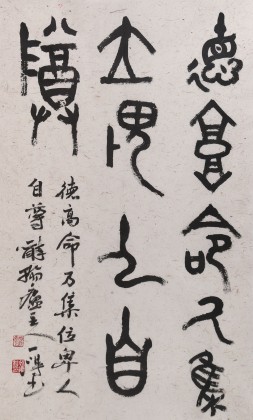 德高命乃集
位卑人自
尊
德高命乃集位卑人
自尊 廬主一鳴书